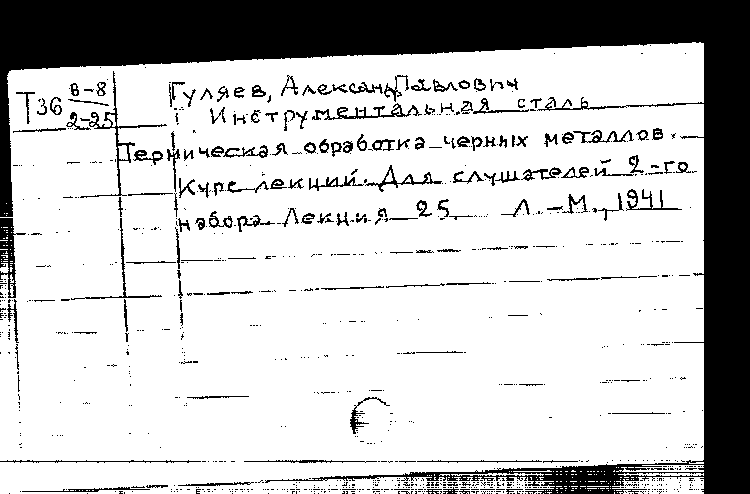 Т36 в-8
2-25
Гуляев, Александр Павлович
Инструментальная сталь
Термическая обработка черных металлов.
Курс лекций. Для слушателей 2-го
набора. Лекция 25. Л.-М., 1941